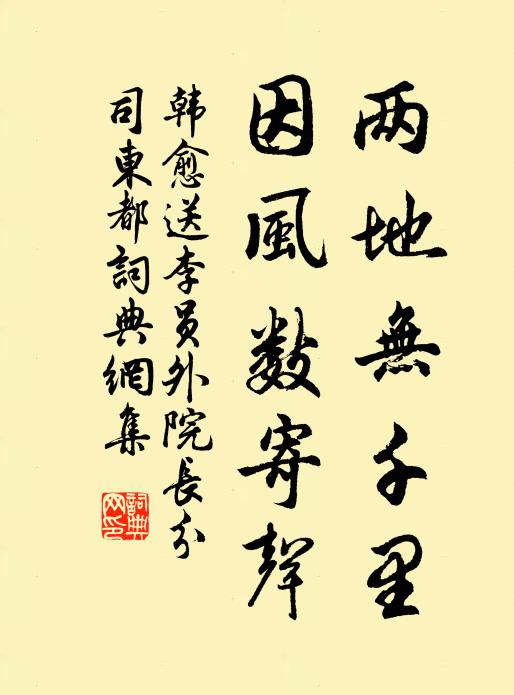 两地無千里
因風數寄聲
韩愈送李员外院長分
司東都詞典網集
詞典
网印